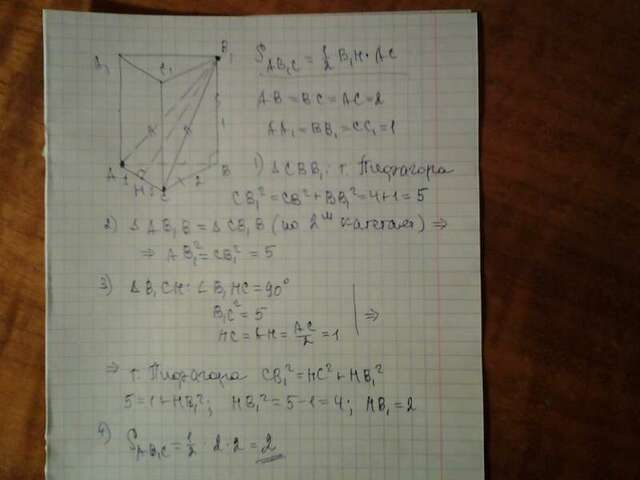 A₁ B₁ C₁
A 1 H 1 C 2 B 1
S_AB₁C = 1/2 B₁H · AC
AB = BC = AC = 2
AA₁ = BB₁ = CC₁ = 1
1) △CBB₁: т. Пифагора
CB₁² = CB² + BB₁² = 4+1 = 5
2) △AB₁B = △CB₁B (по 2ᵘᵐ катетам) ⇒
⇒ AB₁² = CB₁² = 5
3) △B₁CH: ∠B₁HC = 90°
B₁C² = 5
HC = AH = AC/2 = 1 ⇒
⇒ т. Пифагора CB₁² = HC² + HB₁²
5 = 1 + HB₁²; HB₁² = 5 - 1 = 4; HB₁ = 2
4) S_AB₁C = 1/2 · 2 · 2 = 2